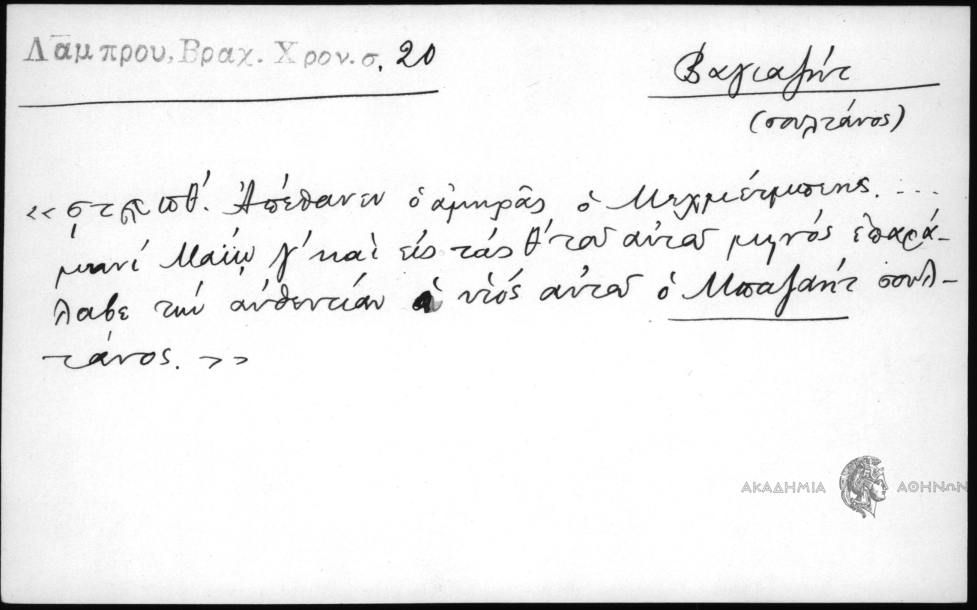 Λάμπρου, Βραχ. Χρον. σ. 20
Βαγιαζήτ
(σουλτάνος)
«͵ϛϡπθ΄. Ἀπέθανεν ὁ ἀμηρᾶς ὁ Μεχμέτμπεης. ...
μηνί Μαΐῳ γ΄ καὶ εἰς τάς θ΄ τοῦ αὐτοῦ μηνός ἐπαρά-
λαβε τήν αὐθεντίαν ὁ υἱός αὐτοῦ ὁ Μπαζαήτ σουλ-
τάνος.»
ΑΚΑΔΗΜΙΑ ΑΘΗΝΩΝ